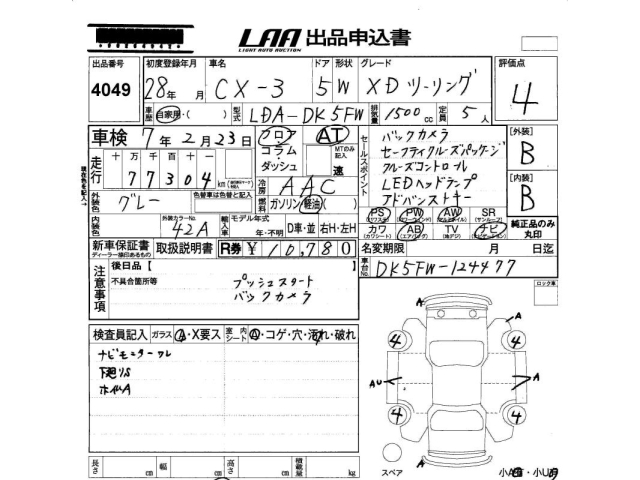 LAA 出品申込書
LIGHT AUTO AUCTION
出品番号 初度登録年月 車名 ドア 形状 グレード 評価点
4049 28年 月 CX-3 5 W XDツーリング 4
車歴 自家用・( ) 型式 LDA-DK5FW 排気量 1500 cc 定員 5人
車検 7年2月23日 フロア AT バックカメラ [外装]
コラム・ダッシュ MTのみ記入 速 セーフティクルーズパッケージ B
走行 十万千百十 77304 km クルーズコントロール
冷房 AAC LEDヘッドランプ [内装]
外装色 グレー 色替車は色替と記入 燃料 ガソリン 軽油( ) アドバンストキー B
内装色 外装カラーNo. 42A 輸入車 モデル年式 年・不明 D車・並 右H・左H
PS PW AW SR
カワ AB TV ナビ 純正品のみ丸印
新車保証書 取扱説明書 R券 ¥10,780 名変期限 月 日迄
ディーラー様印あるもの
車台No. DK5FW-124477
注意事項 後日品【 】
不具合箇所等 プッシュスタート
バックカメラ
ロック車
検査員記入 ガラス A・X要ス 室内シート A・コゲ・穴・汚れ・破れ
ナビモニターワレ
下廻りS
ホイルA
A A
4 4
AU A
4 4
スペア 小A・小U
長さ cm 幅 cm 高さ cm 積載量 kg